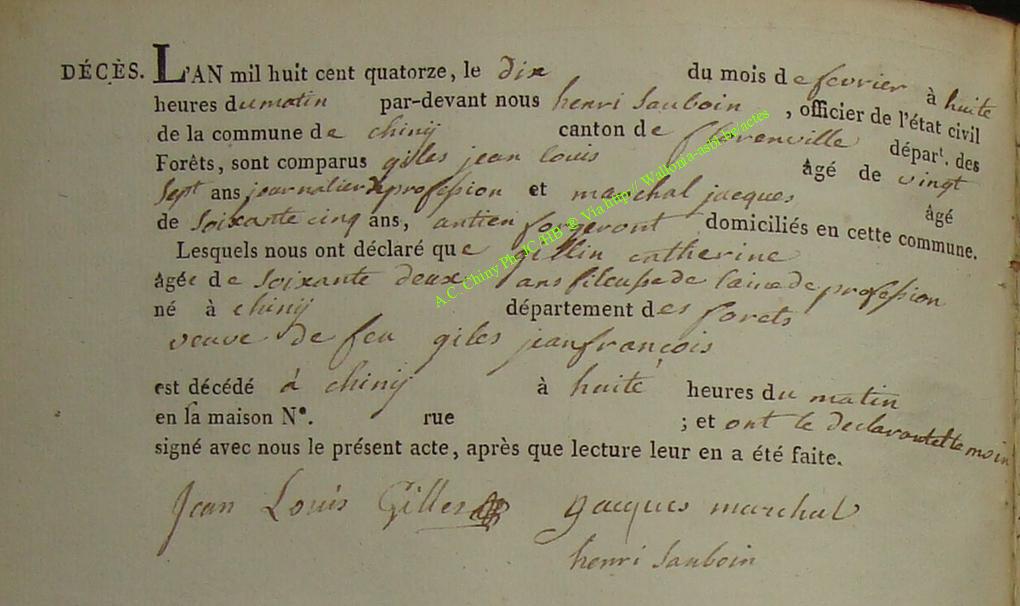 DÉCÈS. L'AN mil huit cent quatorze, le dix du mois de fevrier à huite
heures du matin par-devant nous henri Sauboin, officier de l'état civil
de la commune de chinij canton de florenville départ. des
Forêts, sont comparus gilles jean louis âgé de vingt
Sept ans journalier de profession et marchal jacques âgé
de Soixante cinq ans, antien forgeront domiciliés en cette commune.
Lesquels nous ont déclaré que gillin catherine
âgée de Soixante deux ans fileusse de laine de profession
né à chinij département des forets
veuve de feu giles jeanfrançois
est décédé á chinij à huite heures du matin
en la maison N°. rue ; et ont le declarant et te moin
signé avec nous le présent acte, après que lecture leur en a été faite.
Jean Louis Gilles jacques marchal
henri Sauboin
A.C. Chiny Ph JC /HB @ Via http// Wallonia-asbl.be/actes